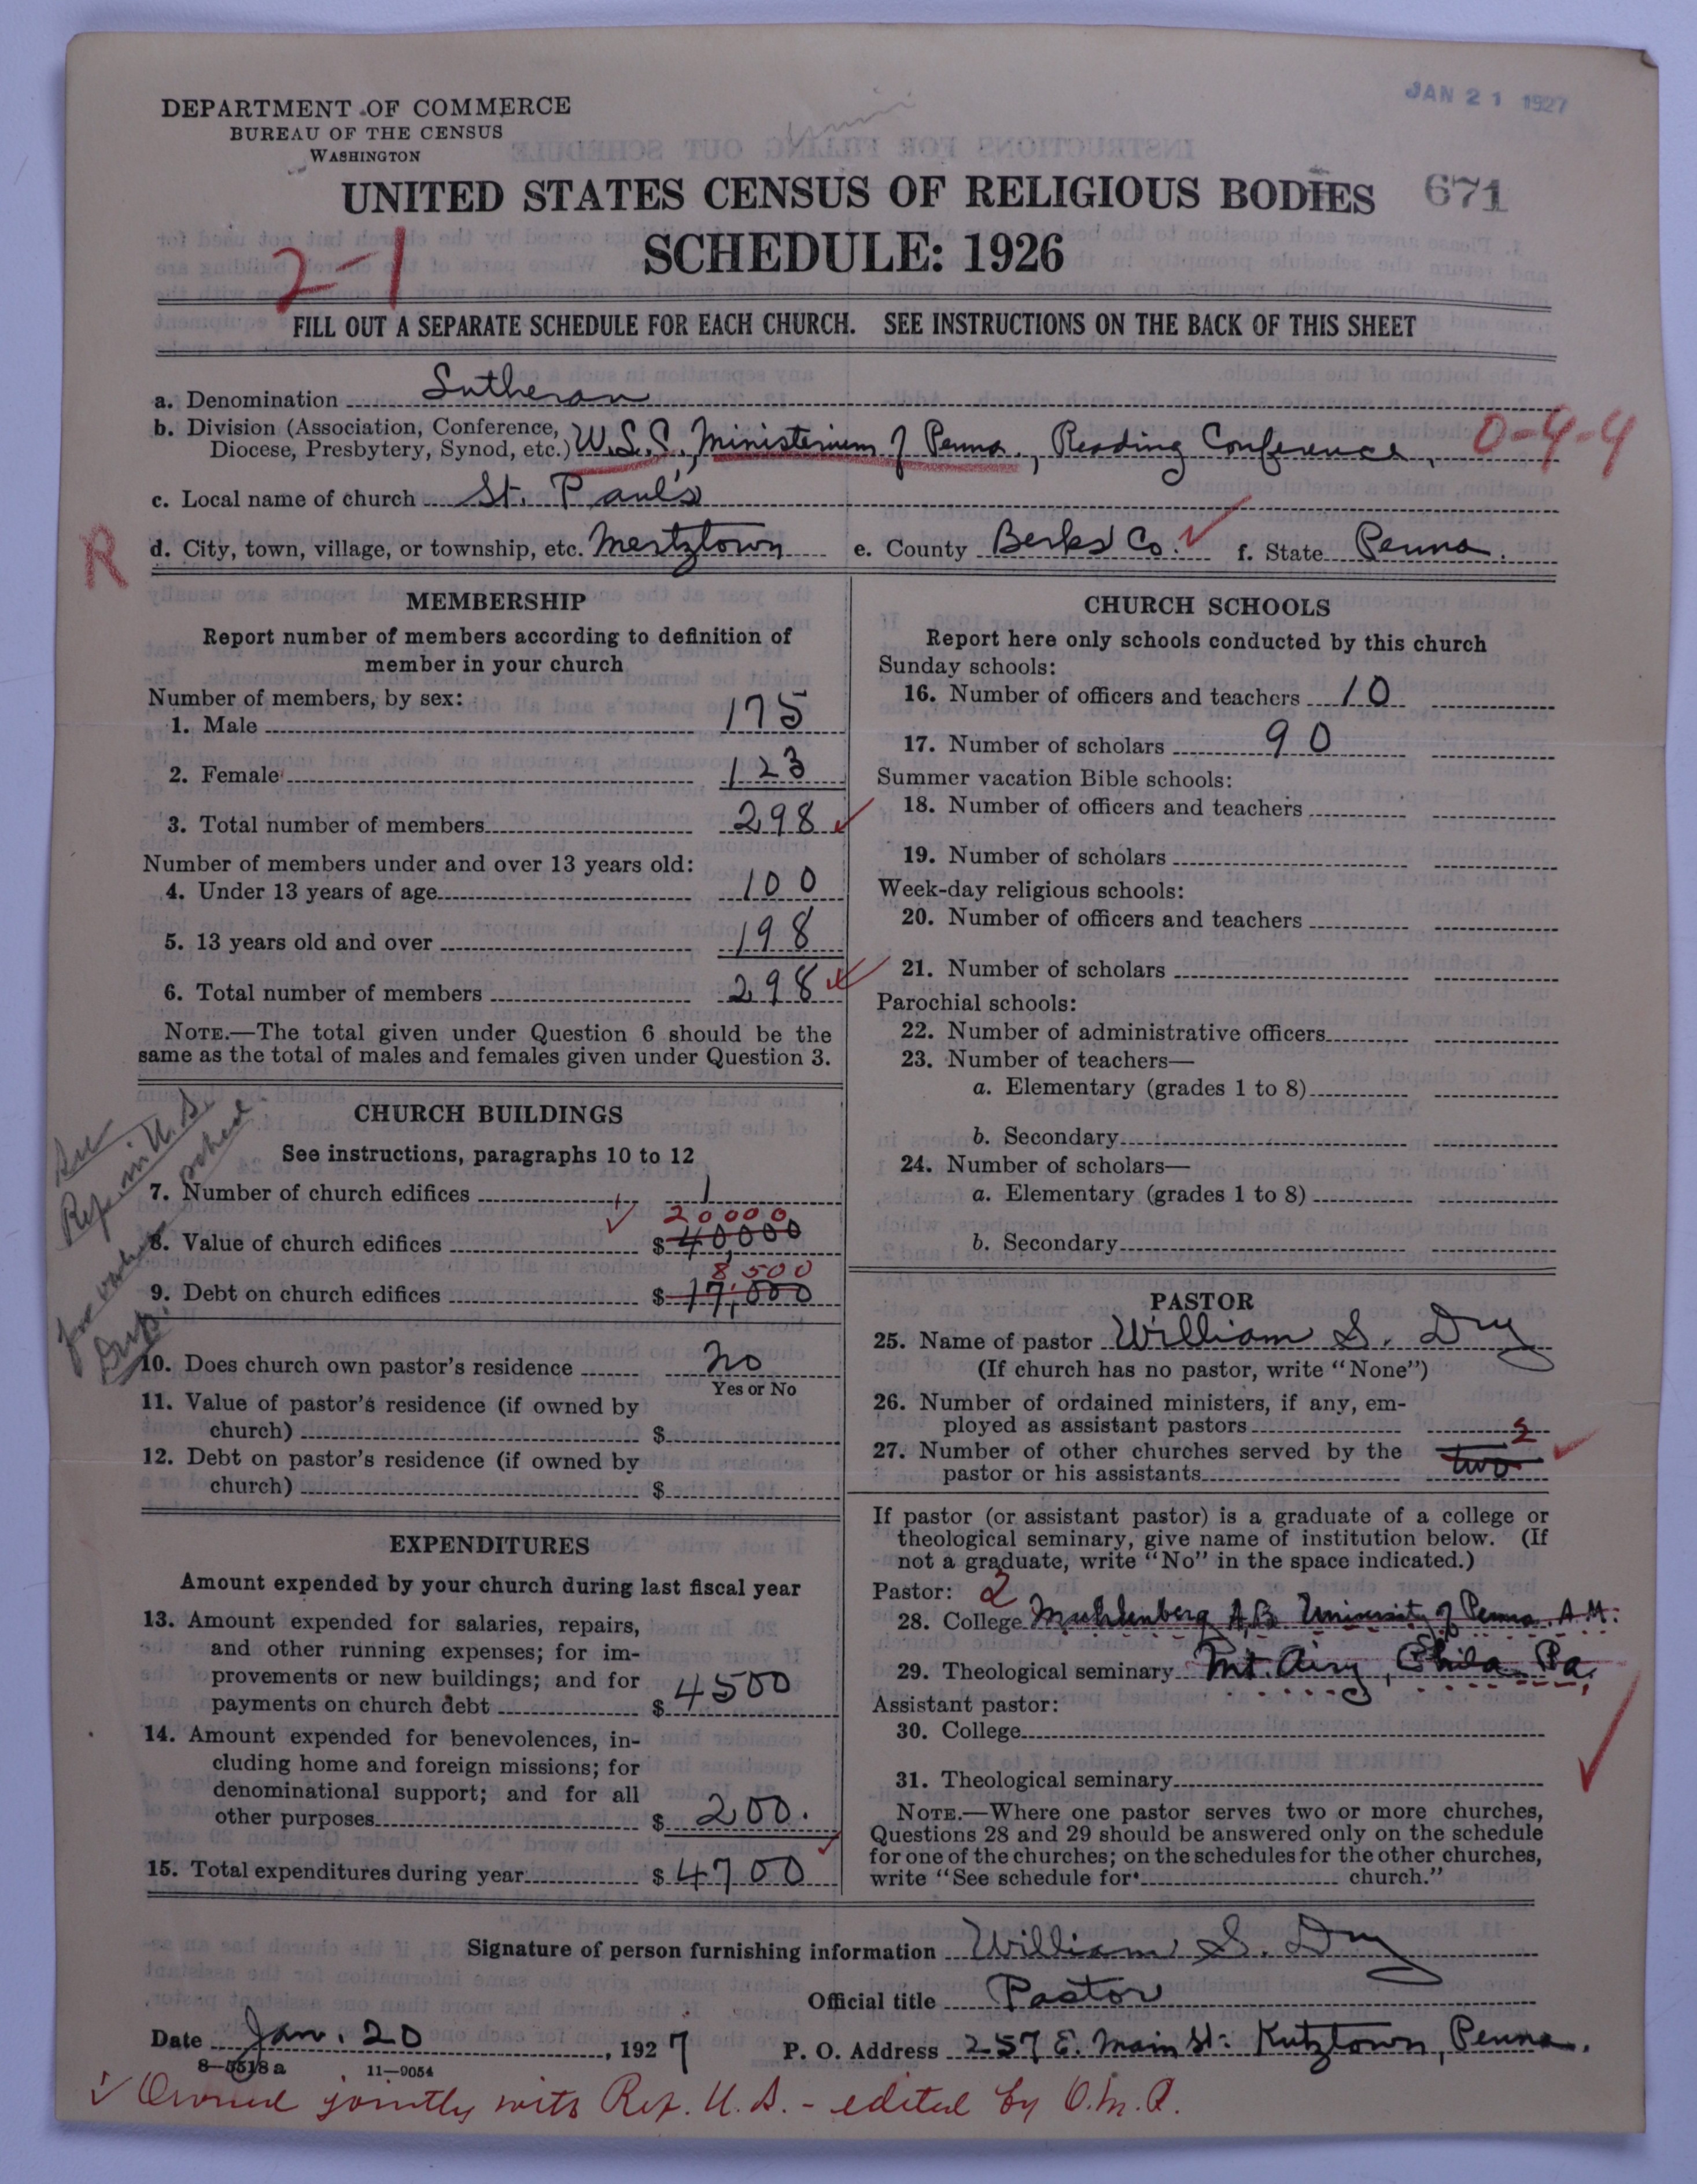 JAN 21 1927
DEPARTMENT OF COMMERCE
BUREAU OF THE CENSUS
WASHINGTON
UNITED STATES CENSUS OF RELIGIOUS BODIES 671
SCHEDULE: 1926
2-1
FILL OUT A SEPARATE SCHEDULE FOR EACH CHURCH. SEE INSTRUCTIONS ON THE BACK OF THIS SHEET
a. Denomination Lutheran
b. Division (Association, Conference,
Diocese, Presbytery, Synod, etc.) W.S.S., Ministerium of Penna., Reading Conference, 0-4-4
c. Local name of church St. Paul's
R d. City, town, village, or township, etc. Mertztown e. County Berks Co. ✓ f. State Penna.
MEMBERSHIP
Report number of members according to definition of
member in your church
Number of members, by sex:
1. Male 175
2. Female 123
3. Total number of members 298 ✓
Number of members under and over 13 years old:
4. Under 13 years of age 100
5. 13 years old and over 198
6. Total number of members 298 ✓
NOTE.—The total given under Question 6 should be the
same as the total of males and females given under Question 3.
See
Ref. in U.S.
sched.
for value
CHURCH BUILDINGS
See instructions, paragraphs 10 to 12
7. Number of church edifices 1
20000
8. Value of church edifices $ 40,000
8,500
9. Debt on church edifices $ 17,000
10. Does church own pastor's residence no
Yes or No
11. Value of pastor's residence (if owned by
church) $
12. Debt on pastor's residence (if owned by
church) $
EXPENDITURES
Amount expended by your church during last fiscal year
13. Amount expended for salaries, repairs,
and other running expenses; for im-
provements or new buildings; and for
payments on church debt $ 4500
14. Amount expended for benevolences, in-
cluding home and foreign missions; for
denominational support; and for all
other purposes $ 200.
15. Total expenditures during year $ 4700
CHURCH SCHOOLS
Report here only schools conducted by this church
Sunday schools:
16. Number of officers and teachers 10
17. Number of scholars 90
Summer vacation Bible schools:
18. Number of officers and teachers
19. Number of scholars
Week-day religious schools:
20. Number of officers and teachers
21. Number of scholars
Parochial schools:
22. Number of administrative officers
23. Number of teachers—
a. Elementary (grades 1 to 8)
b. Secondary
24. Number of scholars—
a. Elementary (grades 1 to 8)
b. Secondary
PASTOR
25. Name of pastor William S. Dry
(If church has no pastor, write "None")
26. Number of ordained ministers, if any, em-
ployed as assistant pastors
2
27. Number of other churches served by the
pastor or his assistants two ✓
If pastor (or assistant pastor) is a graduate of a college or
theological seminary, give name of institution below. (If
not a graduate, write "No" in the space indicated.)
Pastor: 2
28. College Muhlenberg A.B. University of Penna. A.M.
29. Theological seminary Mt. Airy, Phila. Pa.
Assistant pastor:
30. College
31. Theological seminary
NOTE.—Where one pastor serves two or more churches,
Questions 28 and 29 should be answered only on the schedule
for one of the churches; on the schedules for the other churches,
write "See schedule for church."
Signature of person furnishing information William S. Dry
Official title Pastor
Date Jan. 20, 1927 P. O. Address 257 E. Main St. Kutztown, Penna.
8-5518a 11-9054
✓ Owned jointly with Ref. U.S. - edited by O.M.R.